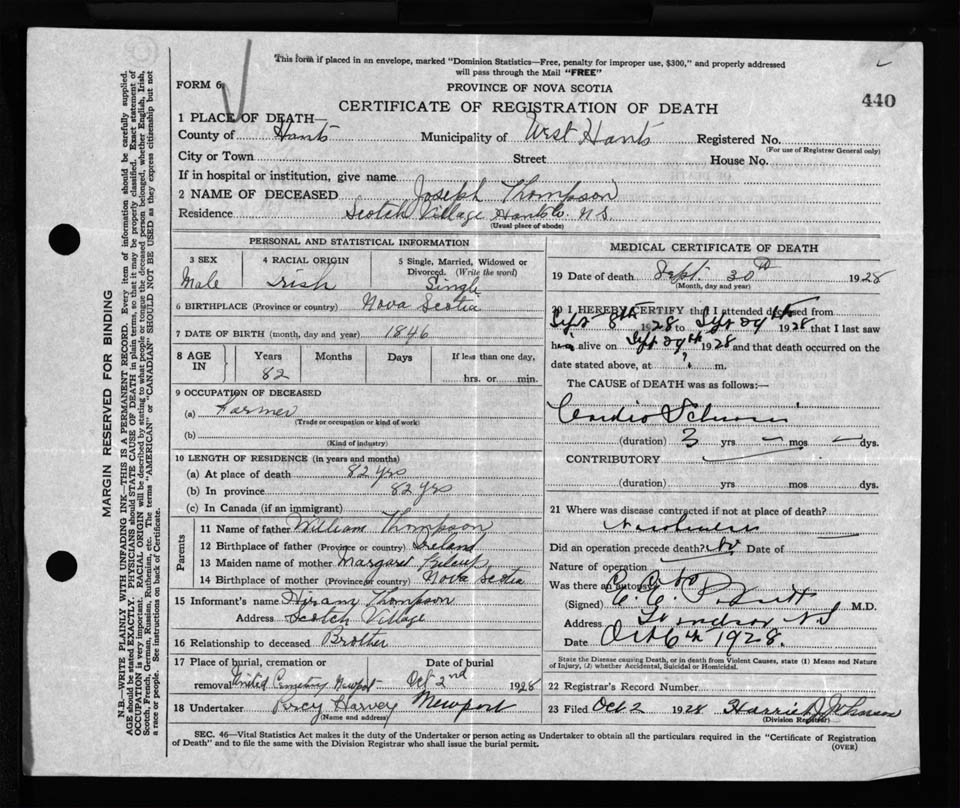 This form if placed in an envelope, marked "Dominion Statistics—Free, penalty for improper use, $300," and properly addressed
will pass through the Mail "FREE"
FORM 6
PROVINCE OF NOVA SCOTIA
440
CERTIFICATE OF REGISTRATION OF DEATH
1 PLACE OF DEATH—
County of Hants Municipality of West Hants Registered No.
(For use of Registrar General only)
City or Town Street House No.
If in hospital or institution, give name
2 NAME OF DECEASED Joseph Thompson
Residence Scotch Village Hants Co. N.S.
(Usual place of abode)
PERSONAL AND STATISTICAL INFORMATION
3 SEX 4 RACIAL ORIGIN 5 Single, Married, Widowed or
Divorced. (Write the word)
Male Irish Single
6 BIRTHPLACE (Province or country) Nova Scotia
7 DATE OF BIRTH (month, day and year) 1846
8 AGE IN Years Months Days If less than one day,
82 hrs. or min.
9 OCCUPATION OF DECEASED
(a) Farmer
(Trade or occupation or kind of work)
(b)
(Kind of industry)
10 LENGTH OF RESIDENCE (in years and months)
(a) At place of death 82 yrs
(b) In province 82 yrs
(c) In Canada (if an immigrant)
Parents
11 Name of father William Thompson
12 Birthplace of father (Province or country) Ireland
13 Maiden name of mother Margaret
14 Birthplace of mother (Province or country) Nova Scotia
15 Informant's name Hiram Thompson
Address Scotch Village
16 Relationship to deceased Brother
17 Place of burial, cremation or Date of burial
removal United Cemetery Newport Oct 2nd 1928
18 Undertaker Percy Harvey Newport
(Name and address)
MEDICAL CERTIFICATE OF DEATH
19 Date of death Sept. 30th 1928
(Month, day and year)
20 I HEREBY CERTIFY that I attended deceased from
Sept 8th 1928 to Sept 29th 1928 that I last saw
him alive on Sept 29th 1928 and that death occurred on the
date stated above, at ? m.
The CAUSE of DEATH was as follows:—
Cardio
(duration) 3 yrs — mos — dys.
CONTRIBUTORY
(duration) yrs. mos. dys.
21 Where was disease contracted if not at place of death?
Did an operation precede death? No Date of
Nature of operation
Was there an autopsy? No
(Signed) M.D.
Address Windsor NS
Date Oct 6th 1928.
State the Disease causing Death, or in death from Violent Causes, state (1) Means and Nature
of Injury, (2) whether Accidental, Suicidal or Homicidal.
22 Registrar's Record Number
23 Filed Oct 2 1928 Harrie D Johnson
(Division Registrar)
SEC. 46—Vital Statistics Act makes it the duty of the Undertaker or person acting as Undertaker to obtain all the particulars required in the "Certificate of Registration
of Death" and to file the same with the Division Registrar who shall issue the burial permit.
(OVER)
MARGIN RESERVED FOR BINDING
N.B.—WRITE PLAINLY WITH UNFADING INK—THIS IS A PERMANENT RECORD. Every item of information should be carefully supplied.
AGE should be stated EXACTLY. PHYSICIANS should STATE CAUSE OF DEATH in plain terms, so that it may be properly classified. Exact statement of
OCCUPATION is very important. RACIAL ORIGIN will be described by stating to what people or tongue the deceased person belonged, whether English, Irish,
Scotch, French, German, Russian, Ruthenian, etc. The terms "AMERICAN" or "CANADIAN" SHOULD NOT BE USED as they express citizenship but not
a race or people. See instructions on back of Certificate.